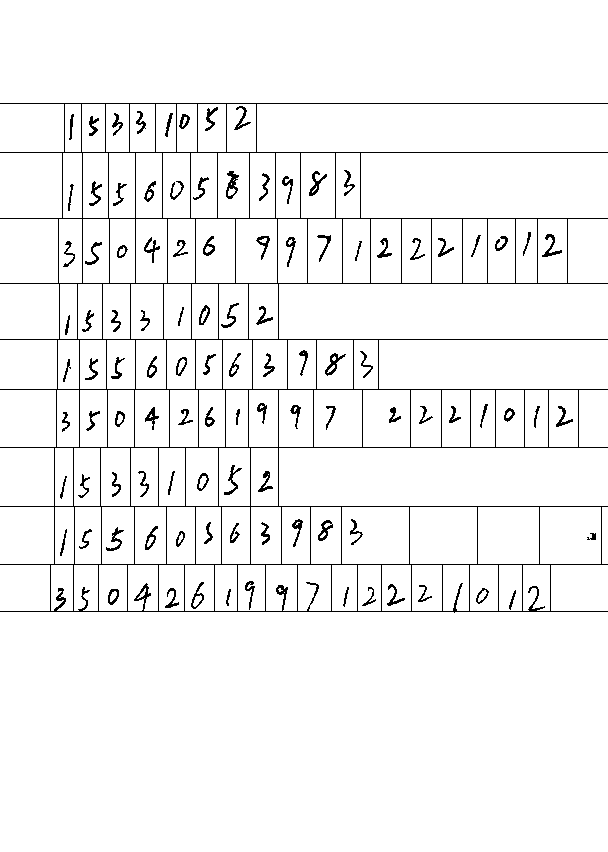 15331052
15560563983
350426 99712221012
15331052
15560563983
3504261997 2221012
15331052
15560563983
350426199712221012